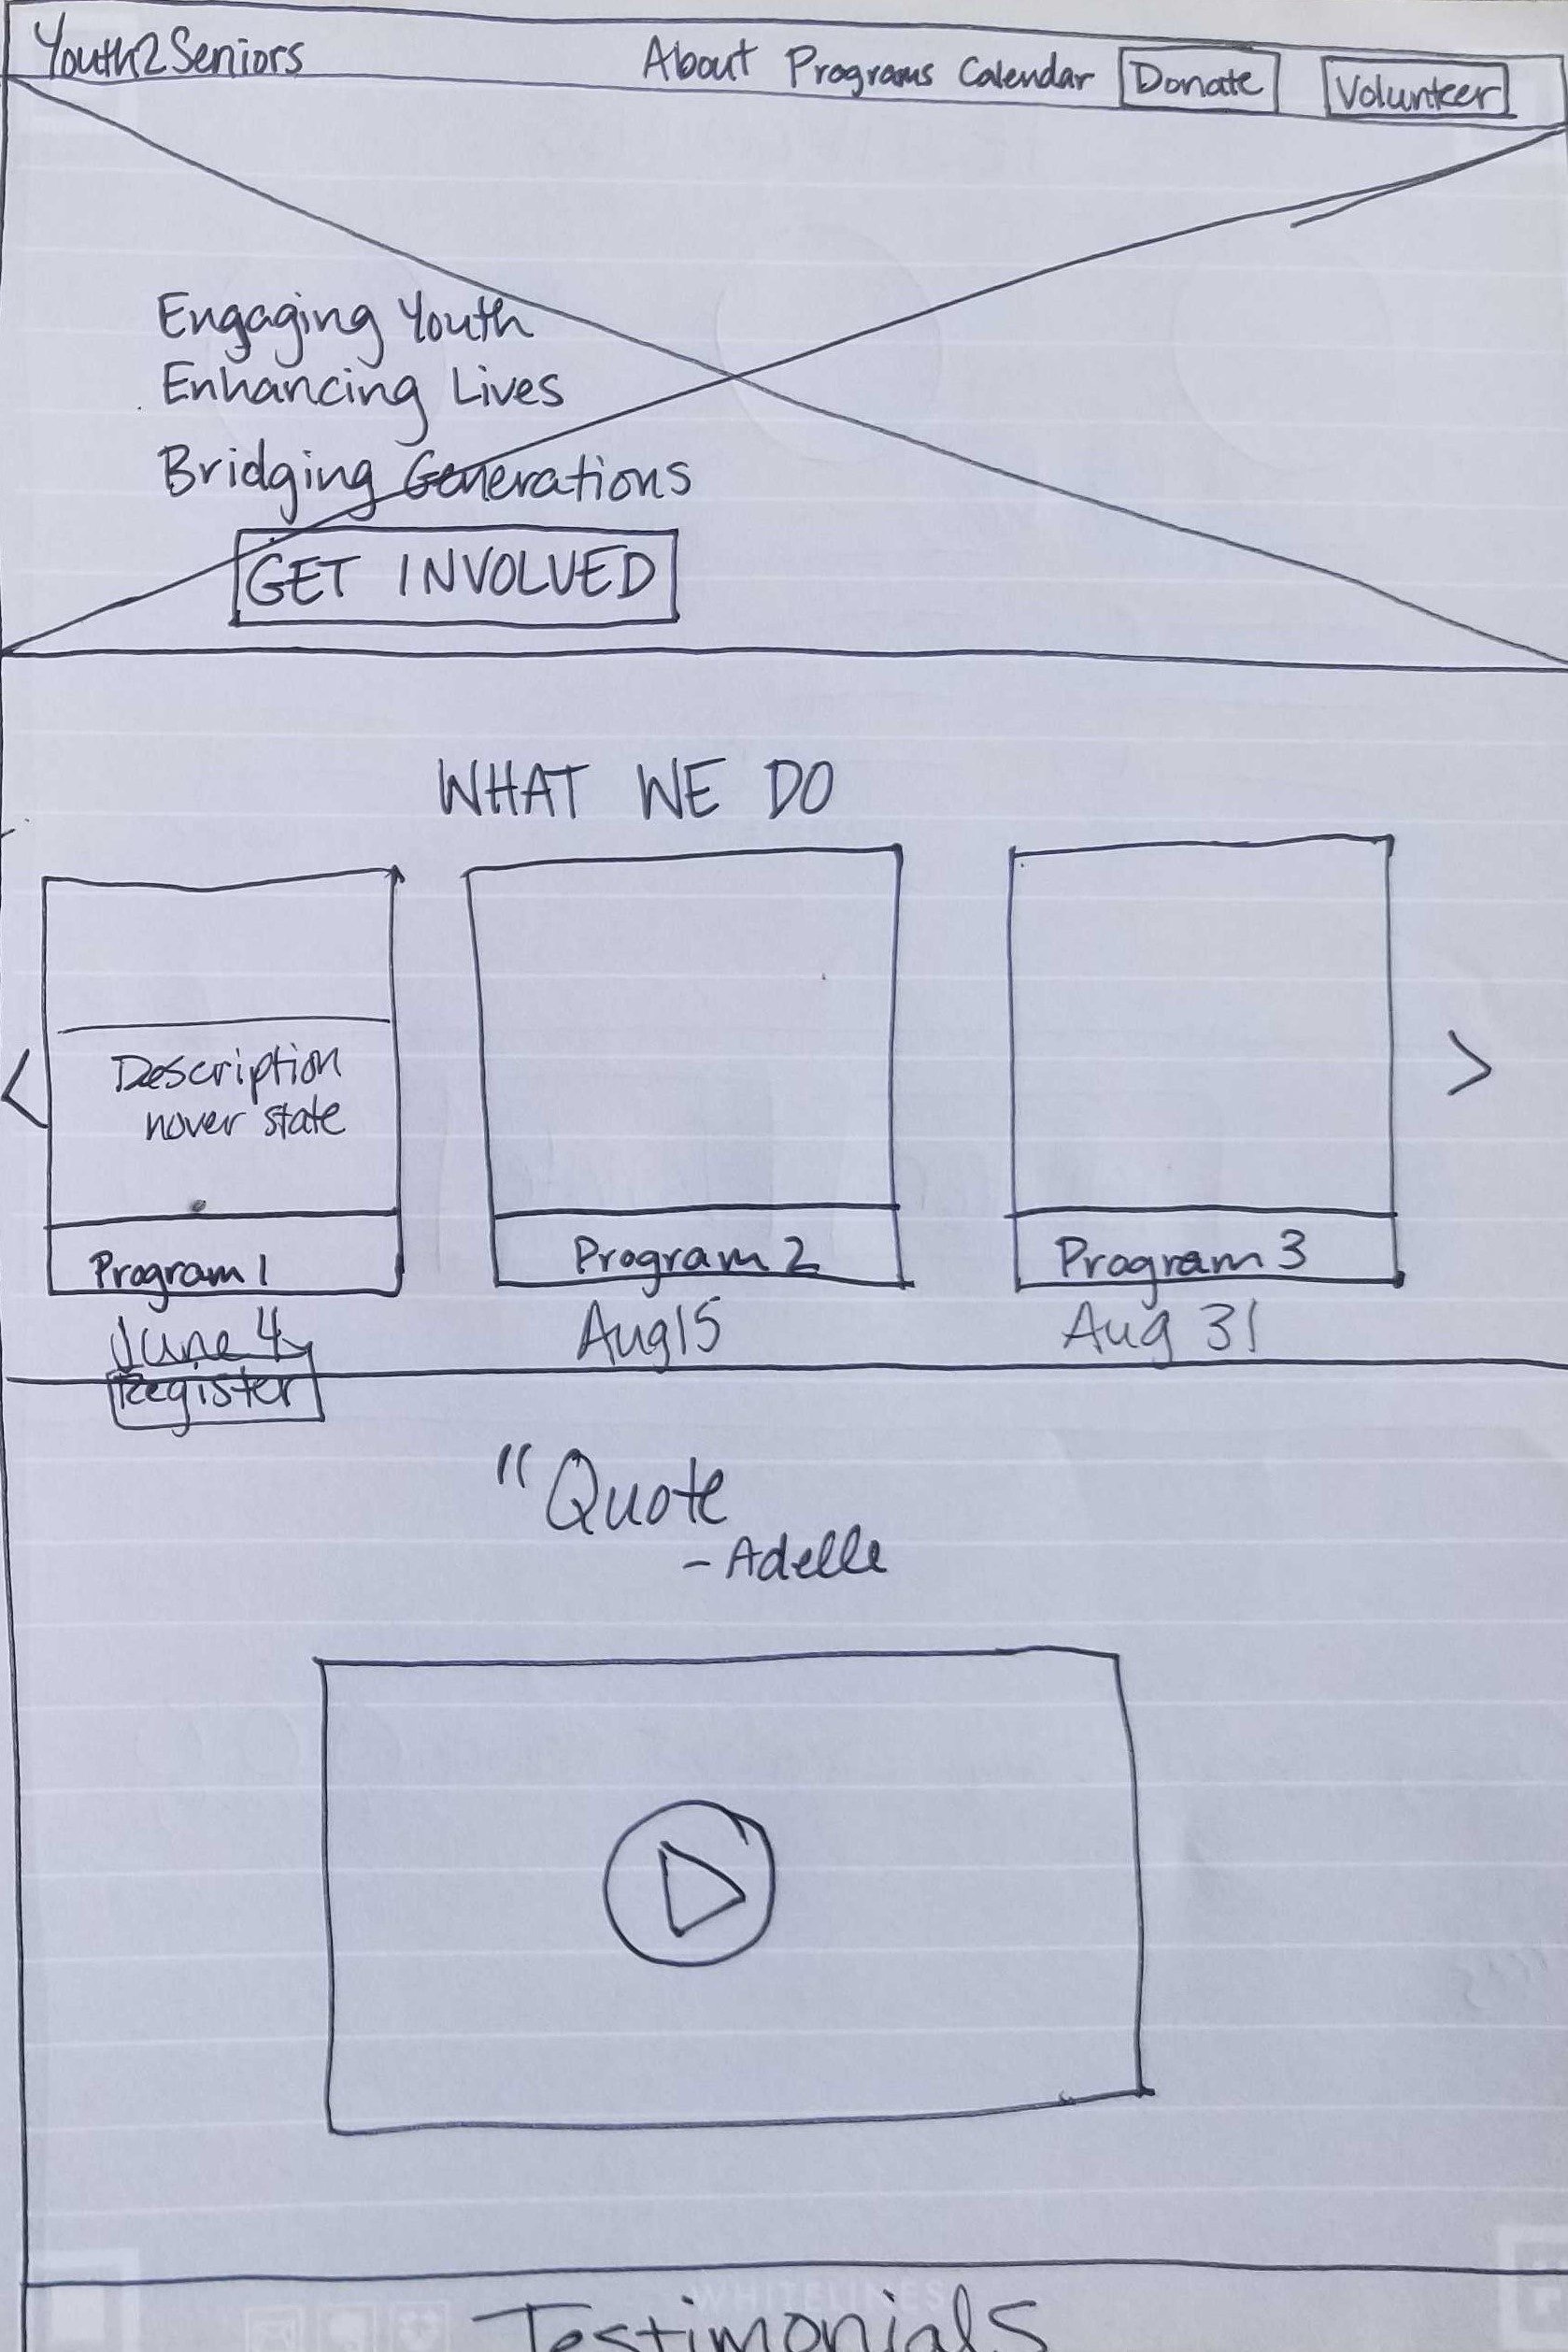 Youth2Seniors About Programs Calendar Donate Volunteer
Engaging Youth
Enhancing Lives
Bridging Generations
GET INVOLVED
WHAT WE DO
Description
hover state
Program 1 Program 2 Program 3
June 4 Aug 15 Aug 31
Register
"Quote
- Adelle
WHITELINES
Testimonials